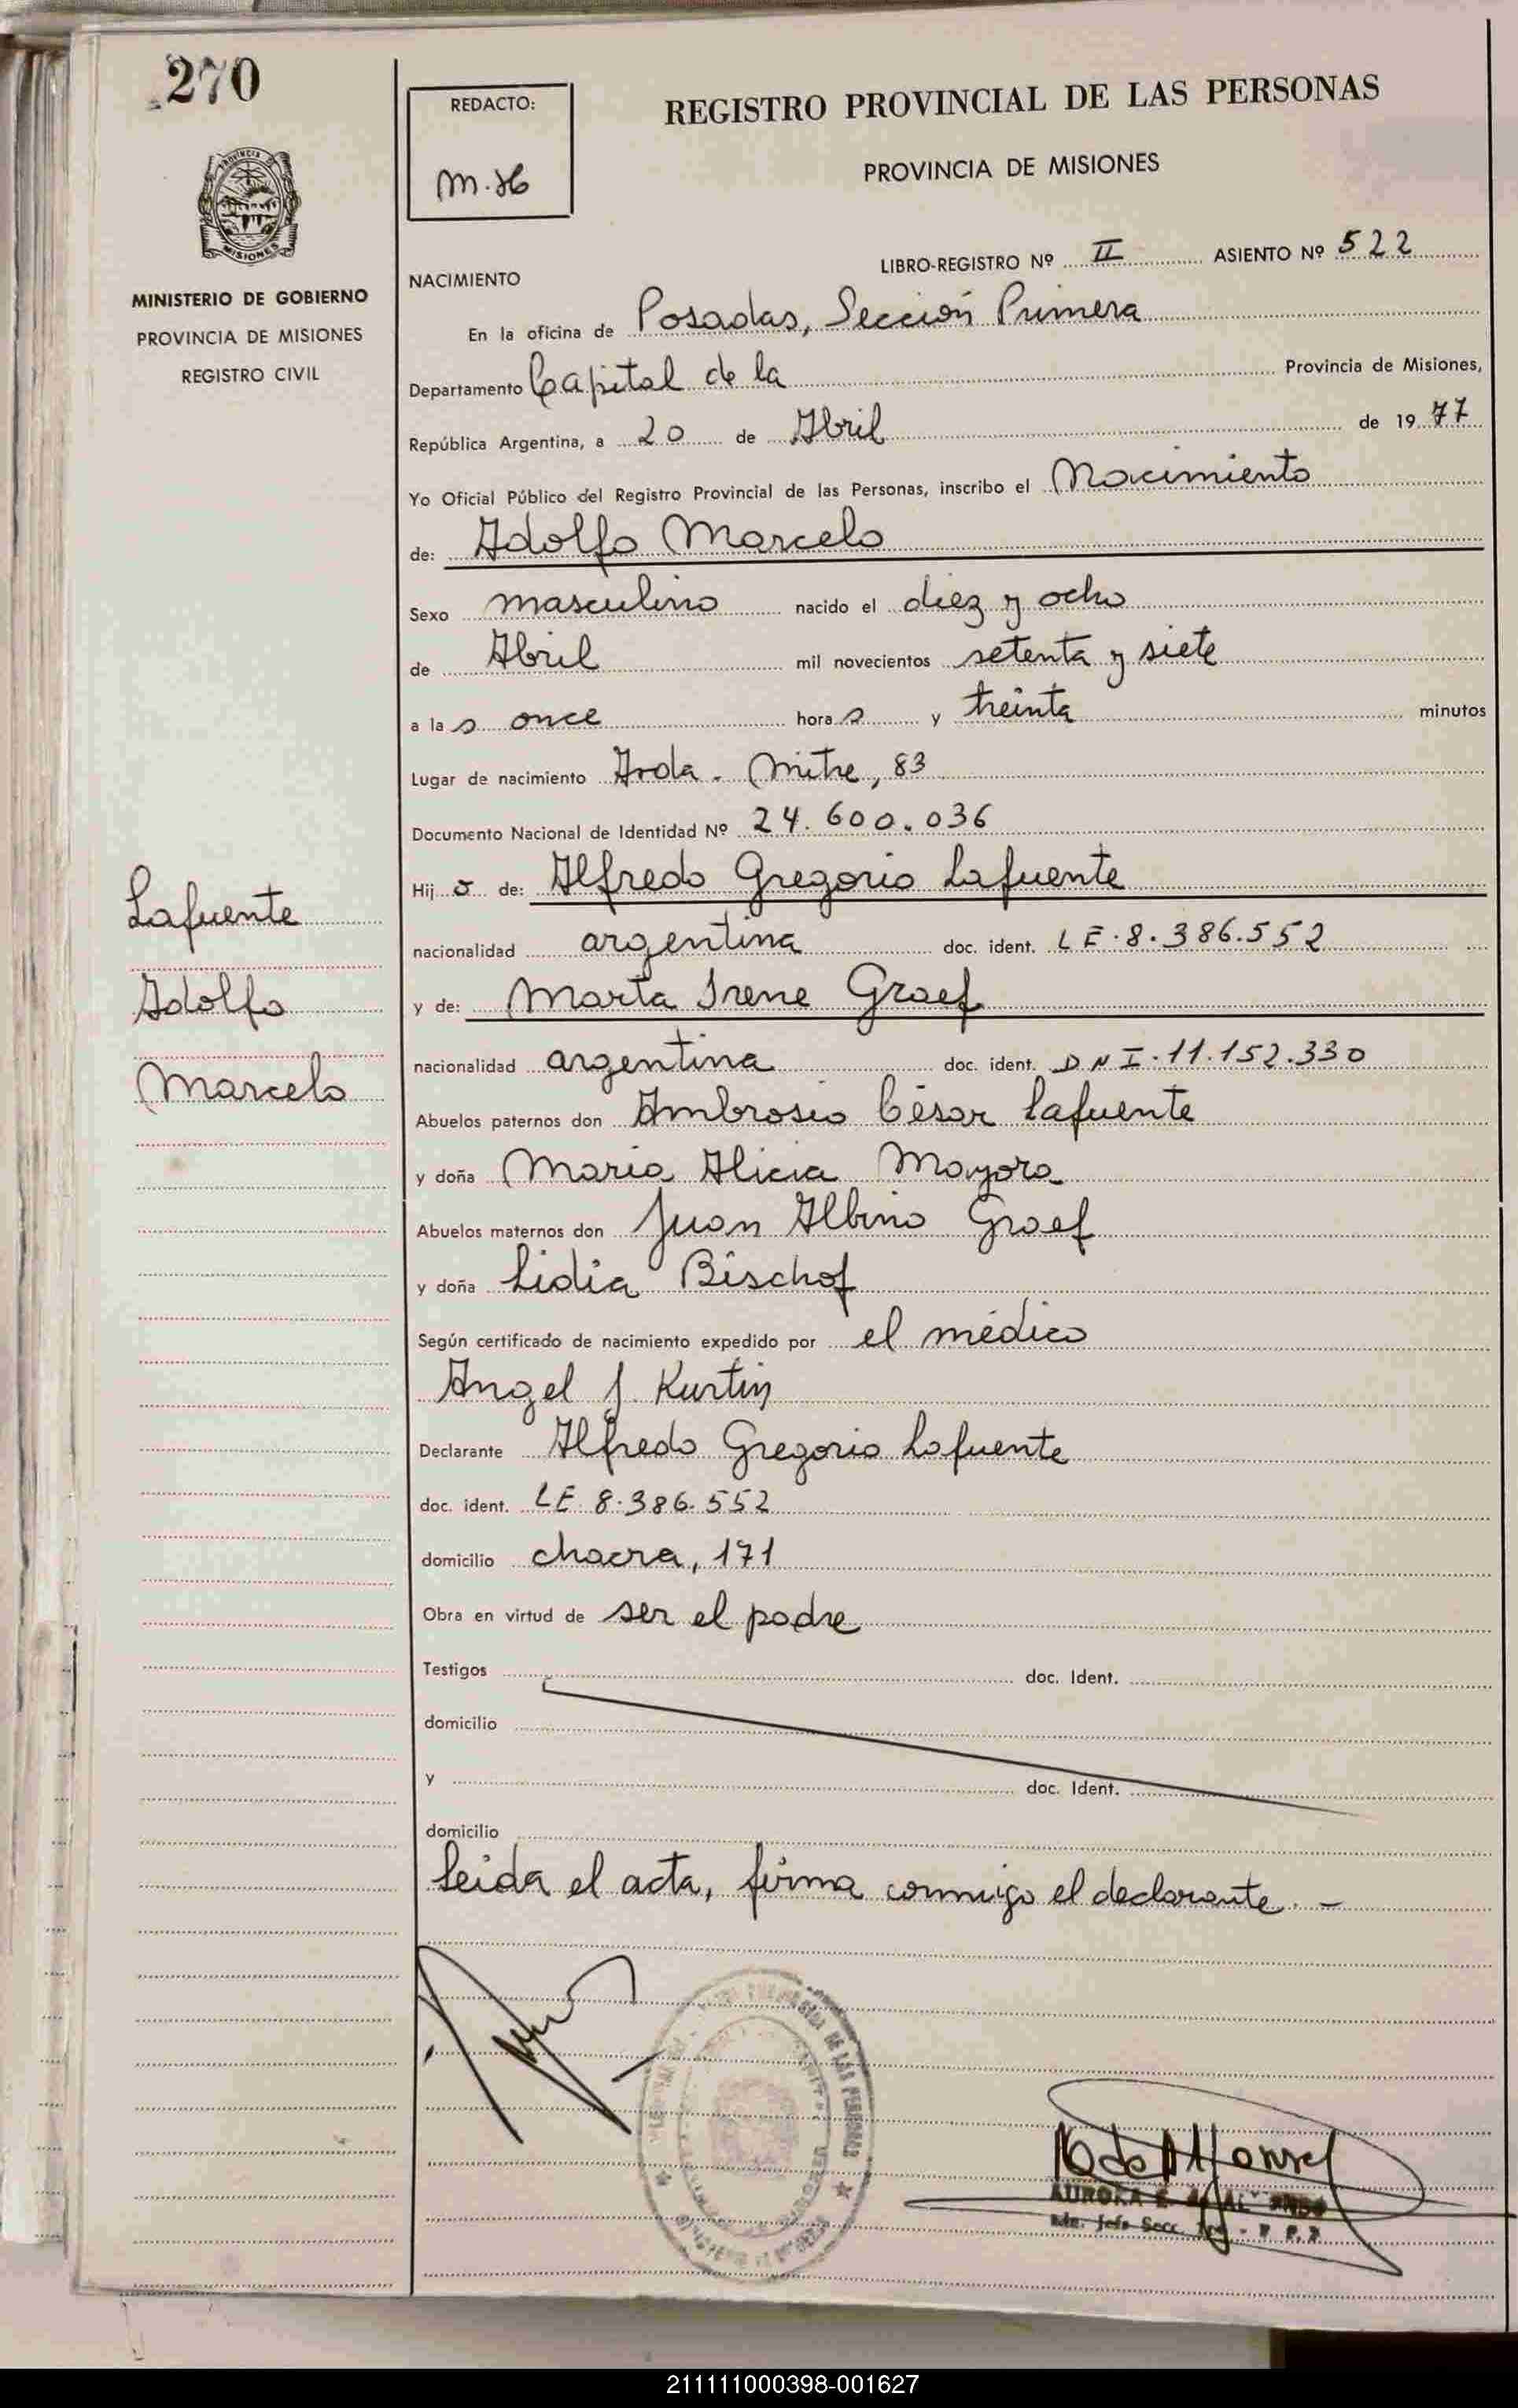 270
REDACTO:
REGISTRO PROVINCIAL DE LAS PERSONAS
PROVINCIA DE MISIONES
MISIONES
MINISTERIO DE GOBIERNO
PROVINCIA DE MISIONES
REGISTRO CIVIL
LIBRO-REGISTRO Nº II ASIENTO Nº 522
NACIMIENTO
En la oficina de Posadas, Sección Primera
Departamento Capital de la Provincia de Misiones,
República Argentina, a 20 de Abril de 1977
Yo Oficial Público del Registro Provincial de las Personas, inscribo el Nacimiento
de: Adolfo Marcelo
Sexo masculino nacido el diez y ocho
de Abril mil novecientos setenta y siete
a las once horas y treinta minutos
Lugar de nacimiento Avda. Mitre, 83
Documento Nacional de Identidad Nº 24.600.036
Hijo de: Alfredo Gregorio Lafuente
nacionalidad argentina doc. ident. LE.8.386.552
y de: Marta Irene Graef
nacionalidad argentina doc. ident. DNI.11.152.330
Abuelos paternos don Ambrosio César Lafuente
y doña María Alicia Mayora
Abuelos maternos don Juan Albino Graef
y doña Lidia Bischof
Según certificado de nacimiento expedido por el médico
Angel J. Kurtin
Declarante Alfredo Gregorio Lafuente
doc. ident. LE 8.386.552
domicilio chacra, 171
Obra en virtud de ser el padre
Testigos doc. Ident.
domicilio
y doc. Ident.
domicilio
Leida el acta, firma conmigo el declarante. -
Lafuente
Adolfo
Marcelo
DE LAS PERSONAS
AURORA E.
Jefe Secc.
211111000398-001627